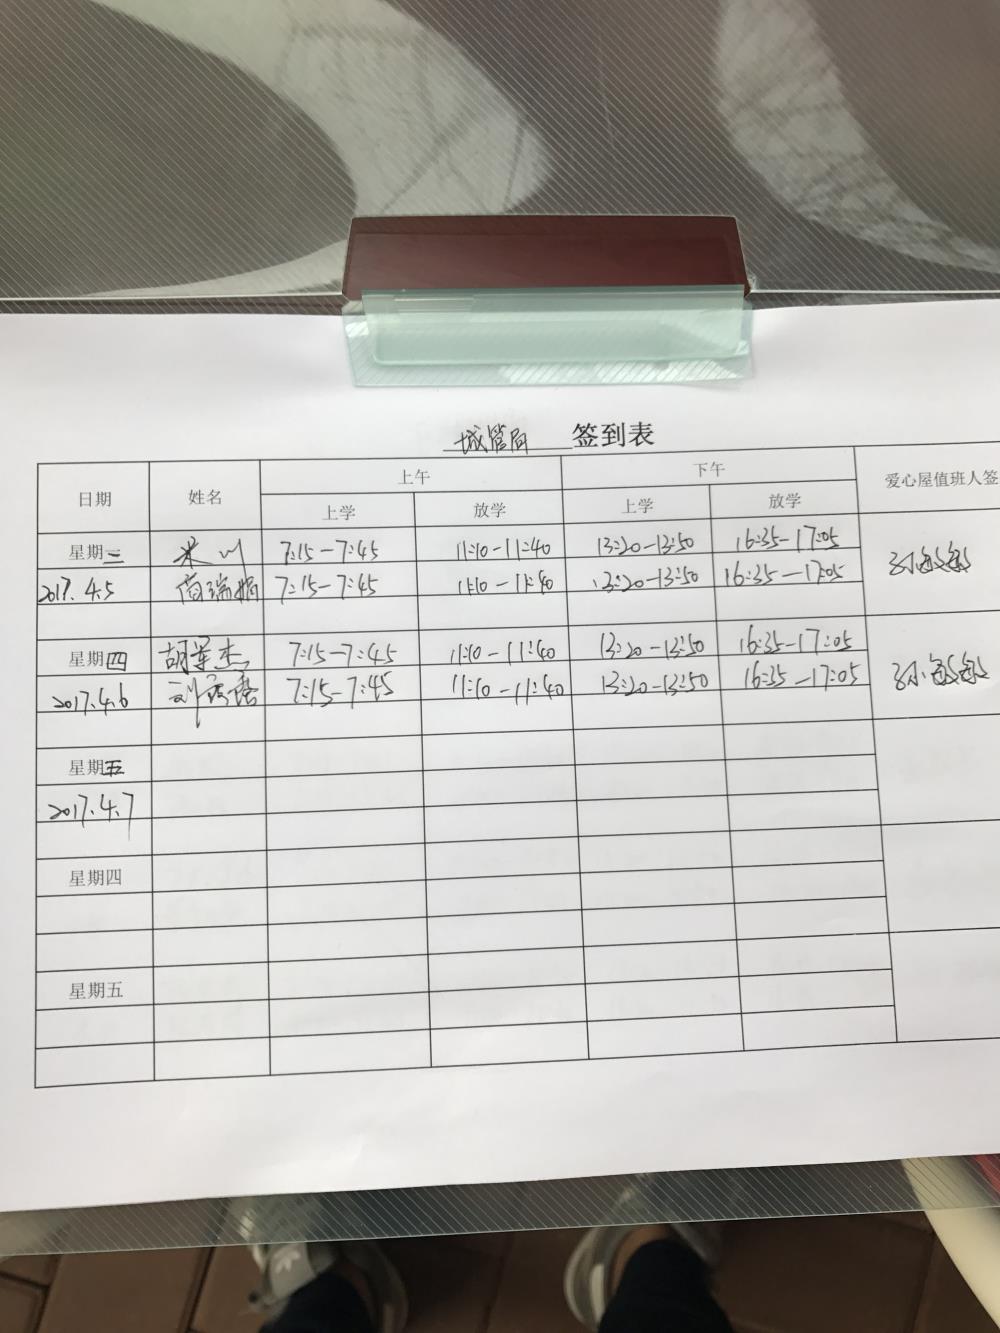 城管局 签到表
日期 姓名 上午 下午 爱心屋值班人签
上学 放学 上学 放学
星期三 米川 7:15-7:45 11:10-11:40 13:20-13:50 16:35-17:05
2017.4.5 7:15-7:45 11:10-11:40 13:20-13:50 16:35-17:05
星期四 胡学杰 7:15-7:45 11:10-11:40 13:20-13:50 16:35-17:05
2017.4.6 7:15-7:45 11:10-11:40 13:20-13:50 16:35-17:05
星期五
2017.4.7
星期四
星期五